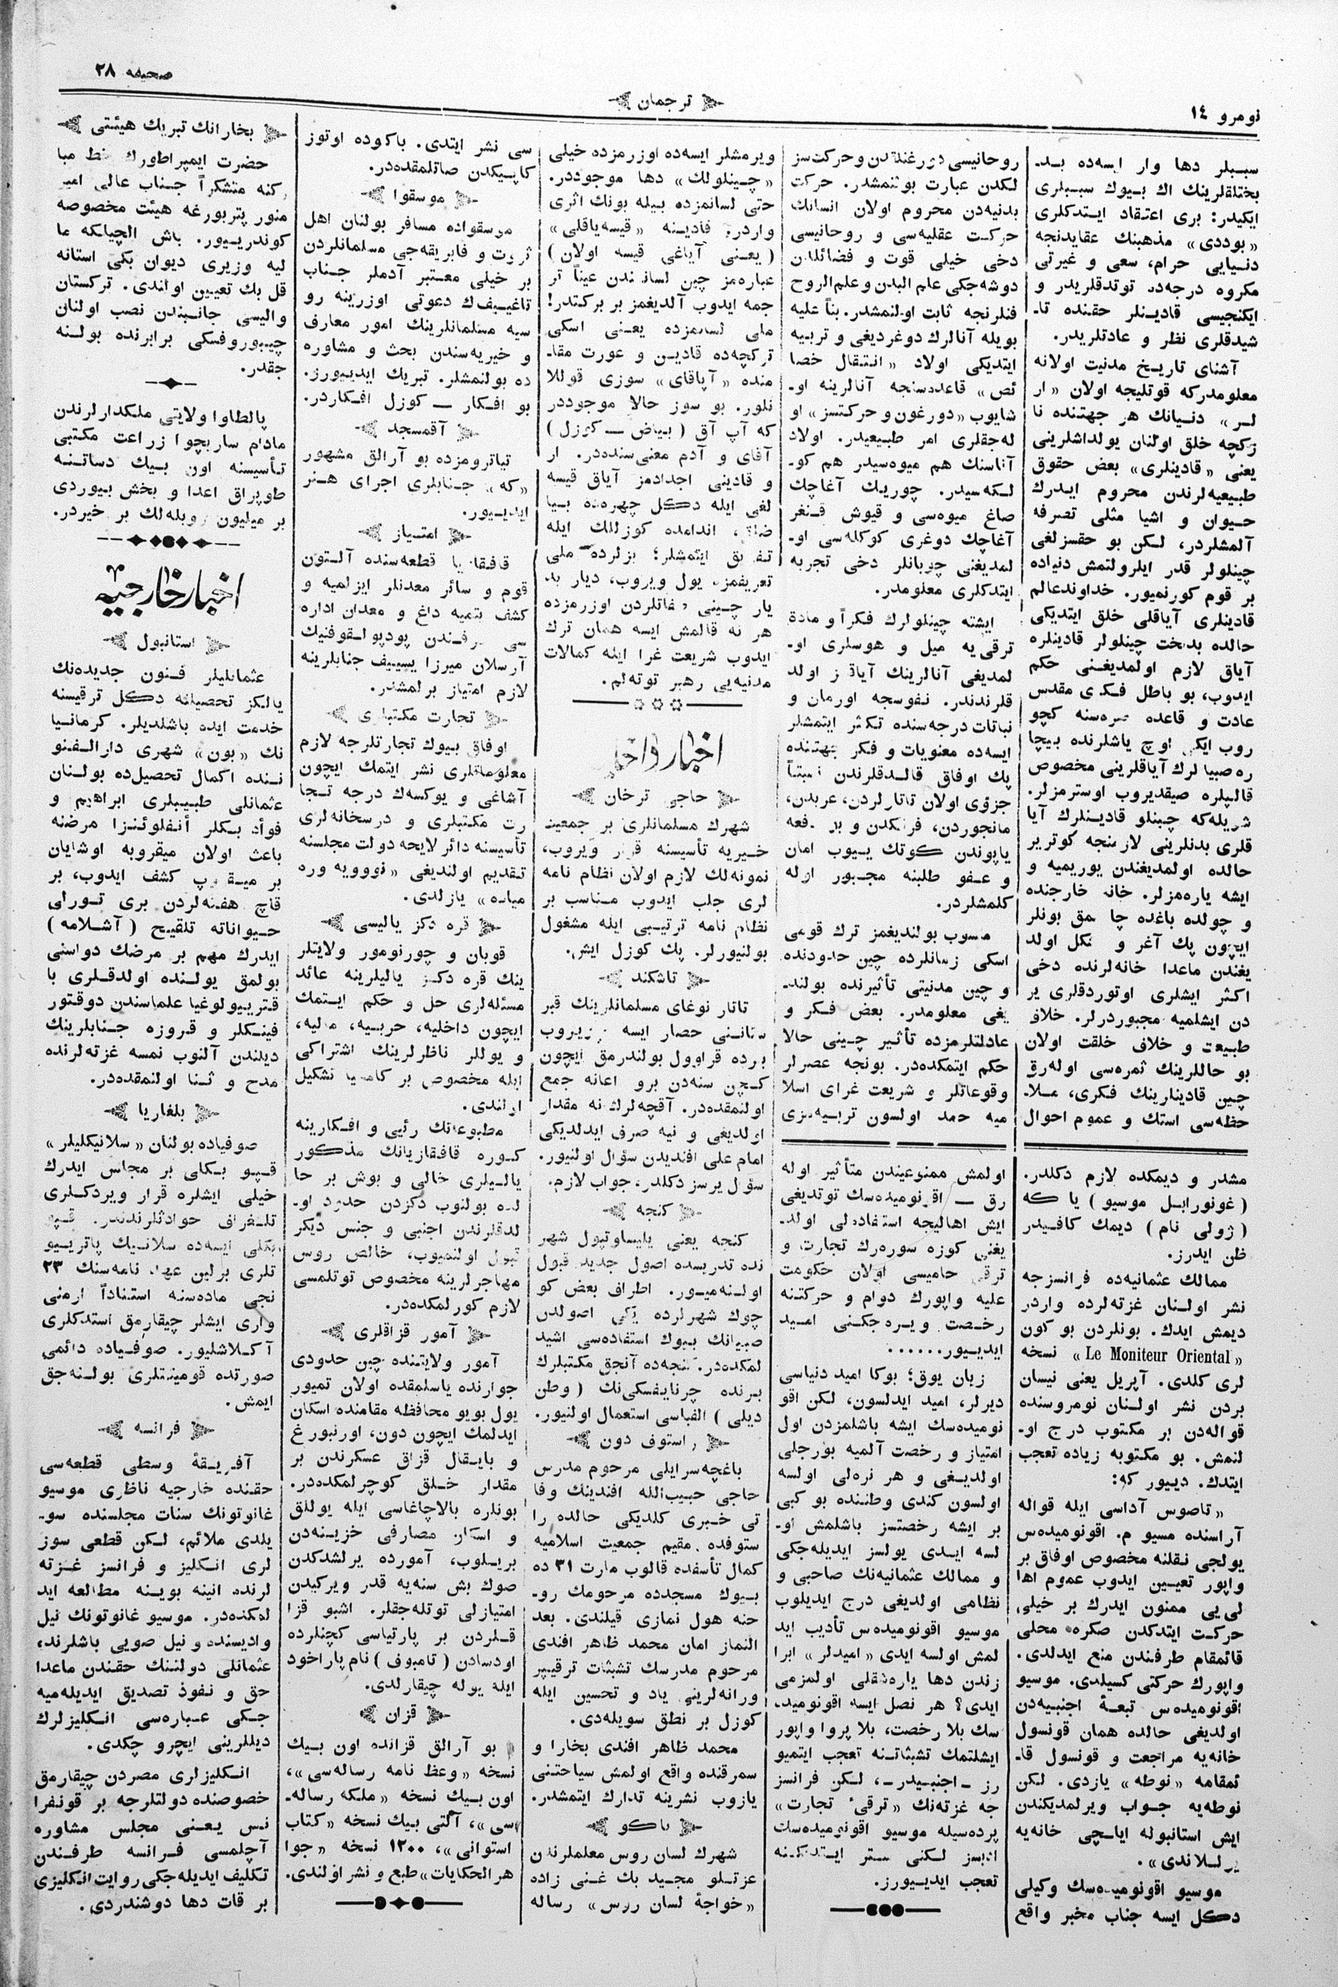 نومرو ١٤
ترجمان
صحیفه ٢٨
سببلر دها وار ایسه‌ده بد-
بختلقلرینك اك بیوك سببلری
ایکیدر: بری اعتقاد ایتدکلری
«بوددی» مذهبنك عقایدنجه
دنیایی حرام، سعی و غیرتی
مکروه درجه‌ده توتدقلریدر و
ایکنجیسی قادینلر حقنده تا-
شیدقلری نظر و عادتلریدر.
آشنای تاریخ مدنیت اولانه
معلومدرکه قوتلیجه اولان «ار
لر» دنیانك هر جهتنده نا
زکجه خلق اولنان یولداشلرینی
یعنی «قادینلری» بعض حقوق
طبیعیه‌لرندن محروم ایدرك
حیوان و اشیا مثلی تصرفه
آلمشلردر، لکن بو حقسزلغی
چینلولر قدر ایلرولتمش دنیاده
بر قوم کورنمیور. خداوندعالم
قادینلری آیاقلی خلق ایتدیکی
حالده بدبخت چینلولر قادینلره
آیاق لازم اولمدیغنی حکم
ایدوب، بو باطل فکری مقدس
عادت و قاعده صره‌سنه کچو
روب ایکی اوچ یاشلرنده بیچا
ره صبیا لرك آیاقلرینی مخصوص
قالیلره صیقدیروب اوسترمزلر.
شویله‌که چینلو قادینلرك آیا
قلری بدنلرینی لازمنجه کوتریر
حالده اولمدیغندن یوریمیه و
ایشه یاره‌مزلر. خانه خارجنده
و چولده باغده چالشمق بونلر
ایچون پك آغر و مشکل اولد
یغندن ماعدا خانه‌لرنده دخی
اکثر ایشلری اوتوردقلری یر
دن ایشلمیه مجبوردرلر. خلاف
طبیعت و خلاف خلقت اولان
بو حاللرینك ثمره‌سی اوله‌رق
چین قادینلرینك فکری، ملا-
حظه‌سی استك و عموم احوال
روحانیسی دورغنلقدن وحرکت‌سز
لکدن عبارت بولنمشدر. حرکت
بدنیه‌دن محروم اولان انسانك
حرکت عقلیه‌سی و روحانیسی
دخی خیلی قوت و فضائلدن
دوشه‌جکی علم البدن و علم‌الروح
فنلرنجه ثابت اولنمشدر. بناً علیه
بویله آنالرك دوغردیغی و تربیه
ایتدیکی اولاد «انتقال خصا
ئص» قاعده‌سنجه آنالرینه او-
شایوب «دورغون و حرکتسز» او
له‌جقلری امر طبیعیدر. اولاد
آناسنك هم میوه‌سیدر هم کو-
لکه‌سیدر. چوریك آغاچك
صاغ میوه‌سی و قیوش قنغر
آغاچك دوغری کوکله‌سی او-
لمدیغنی چوبانلر دخی تجربه
ایتدکلری معلومدر.
ایشته چینلولرك فکراً و مادة
ترقی‌یه میل و هوسلری او-
لمدیغی آنالرینك آیاقسز اولد
قلرندندر. نفوسجه اورمان و
نباتات درجه‌سنده تکثر ایتمشلر
ایسه‌ده معنویات و فکر جهتنده
پك اوفاق قالدقلرندن نسبتاً
جزؤی اولان تاتارلردن، عربدن،
مانجوردن، فرنکدن و بو دفعه
یاپوندن کوتك ییوب امان
و عفو طلبنه مجبور اوله
کلمشلردر.
منسوب بولندیغمز ترك قومی
اسکی زمانلرده چین حدودنده
و چین مدنیتی تأثیرنده بولند-
یغی معلومدر. بعض فکر و
عادتلرمزده تأثیر چینی حالا
حکم ایتمکده‌در. بونجه عصرلر
وقوعاتلر و شریعت غرای اسلا
میه حمد اولسون تربیه‌مزی
ویرمشلر ایسه‌ده اوزرمزده خیلی
«چینلولك» دها موجوددر.
حتی لسانمزده بیله بونك اثری
واردر؛ قادینه «قیسه‌یاقلی»
(یعنی آیاغی قیسه اولان)
عباره‌مز چین لسانندن عیناً تر
جمه ایدوب آلدیغمز بر برکتدر!
ملی لسانمزده یعنی اسکی
ترکچه‌ده قادین و عورت مقا-
منده «آپاقای» سوزی قوللا
نلور. بو سوز حالا موجوددر
که آپ آق (بیاض — کوزل)
آقای و آدم معنی‌سنده‌در. ار
و قادینی اجدادمز آیاق قیسه
لغی ایله دکل چهره‌ده بیا
ضلق، اندامده کوزللك ایله
تفریق ایتمشلر؛ بزلرده ملی
تعریفمزه یول ویروب، دیار بد
یار چینی صفاتلردن اوزرمزده
هر نه قالمش ایسه همان ترك
ایدوب شریعت غرا ایله کمالات
مدنیه‌یی رهبر توته‌لم.
اخبار داخلیه
حاجی ترخان
شهرك مسلمانلری بر جمعیت
خیریه تأسیسنه قرار ویروب،
نمونه‌لك لازم اولان نظام نامه
لری جلب ایدوب مناسب بر
نظام نامه ترتیبی ایله مشغول
بولنیورلر. پك کوزل ایش.
تاشکند
تاتار نوغای مسلمانلرینك قبر
ستاننی حصار ایسه ویروب
برده قراوول بولندرمق ایچون
کچن سنه‌دن برو اعانه جمع
اولنمقده‌در. آقچه‌لرك نه مقدار
اولدیغی و نیه صرف ایدلدیکی
امام علی افندیدن سؤال اولنیور.
سؤال یرسز دکلدر، جواب لازم.
کنجه
کنجه یعنی یلیساوتپول شهر
نده تدریسده اصول جدید قبول
اولنه‌میور. اطراف بعض کو
چوك شهرلرده یکی اصولدن
صبیانك بیوك استفاده‌سی اشید
لمکده‌در. کنجه‌ده آنجق مکتبلرك
برنده چرنایفسکی‌نك (وطن
دیلی) الفباسی استعمال اولنیور.
راستوف دون
باغچه‌سرایلی مرحوم مدرس
حاجی حبیب‌الله افندینك وفا
تی خبری کلدیکی حالده را
ستوفده مقیم جمعیت اسلامیه
کمال تأسفده قالوب مارت ٣١ ده
بیوك مسجدده مرحومك رو-
حنه هول نمازی قیلندی. بعد
النماز امان محمد ظاهر افندی
مرحوم مدرسك تشبثات ترقیپر
ورانه‌لرینی یاد و تحسین ایله
کوزل بر نطق سویله‌دی.
محمد ظاهر افندی بخارا و
سمرقنده واقع اولمش سیاحتنی
یازوب نشرینه تدارك ایتمشدر.
باکو
شهرك لسان روس معلملرندن
عزتلو مجید بك غنی زاده
«خواجهٔ لسان روس» رساله
سی نشر ایتدی. باکوده اوتوز
کاپیکدن صاتلمقده‌در.
موسقوا
موسقواده مسافر بولنان اهل
ثروت و فابریقه‌جی مسلمانلردن
بر خیلی معتبر آدملر جناب
تاغییف‌ك دعوتی اوزرینه رو
سیه مسلمانلرینك امور معارف
و خیریه‌سندن بحث و مشاوره
ده بولنمشلر. تبریك ایدییورز.
بو افکار — کوزل افکاردر.
آقمسجد
تیاترومزده بو آرالق مشهور
«که» جنابلری اجرای هنر
ایدییور.
امتیاز
قافقازیا قطعه‌سنده آلتون
قوم و سائر معدنلر ایزلمیه و
کشف ایتمیه داغ و معدان اداره
سی طرفندن پودپولقوفنیك
آرسلان میرزا یسییف جنابلرینه
لازم امتیاز برلمشدر.
تجارت مکتبلری
اوفاق بیوك تجارتلرجه لازم
معلوماتلری نشر ایتمك ایچون
آشاغی و یوکسه‌ك درجه تجا
رت مکتبلری و درسخانه‌لری
تأسیسنه دائر لایحه دولت مجلسنه
تقدیم اولندیغی «نووویه وره
میاده» یازلدی.
قره دکز یالیسی
قوبان و چورنومور ولایتلر
ینك قره دکز یالیلرینه عائد
مسئله‌لری حل و حکم ایتمك
ایچون داخلیه، حربیه، مالیه،
و یوللر ناظرلرینك اشتراکی
ایله مخصوص بر کامسیا تشکیل
اولندی.
مطبوعاتك رئیی و افکارینه
کوره قافقازیانك مذکور
یالیلری خالی و بوش بر حا
لده بولنوب دکزدن حدود او-
لدقلرندن اجنبی و جنس دیکر
قبول اولنمیوب، خالص روس
مهاجرلرینه مخصوص توتلمسی
لازم کورلمکده‌در.
آمور قزاقلری
آمور ولایتنده چین حدودی
جوارنده یاسلمقده اولان تمیور
یول بویو محافظه مقامنده اسکان
ایدلمك ایچون دون، اورنبورغ
و بایقال قزاق عسکرندن بر
مقدار خلق کوچرلمکده‌در.
بونلره بالاچاغاسی ایله یوللق
و اسکان مصارفی خزینه‌دن
بریلوب، آمورده یرلشدکدن
صوك بش سنه‌یه قدر ویرکیدن
امتیازلی توتله‌جقلر. اشبو قزا
قلردن بر پارتیاسی کچنلرده
اودسادن (تامبوف) نام پاراخود
ایله یوله چیقارلدی.
قزان
بو آرالق قزانده اون بیك
نسخه «وعظ نامه رساله‌سی»،
اون بیك نسخه «ملکه رساله-
سی»، آلتی بیك نسخه «کتاب
استوانی»، ١٢٠٠ نسخه «جوا
هر الحکایات» طبع و نشر اولندی.
بخارانك تبریك هیئتی
حضرت ایمپراطورك خط مبا
رکنه متشکراً جناب عالی امیر
منور پتربورغه هیئت مخصوصه
کوندرییور. باش الچیلکه ما
لیه وزیری دیوان بکی استانه
قل بك تعیین اولندی. ترکستان
والیسی جانبندن نصب اولنان
چیبوروفسکی برابرنده بولنه
جقدر.
پالطاوا ولایتی ملکدارلرندن
مادام ساریچوا زراعت مکتبی
تأسیسنه اون بیك دساتنه
طوپراق اعدا و بخش بیوردی
بر میلیون روبله‌لك بر خیردر.
اخبار خارجیه
استانبول
عثمانلیلر فنون جدیده‌نك
یالکز تحصیلنه دکل ترقیسنه
خدمت ایده باشلدیلر. کرمانیا
نك «بون» شهری دارالفنو
ننده اکمال تحصیل‌ده بولنان
عثمانلی طبیبلری ابراهیم و
فوأد بکلر آنفلوئنزا مرضنه
باعث اولان میقروبه اوشایان
بر میقروپ کشف ایدوب، بر
قاچ هفته‌لردن بری تورلی
حیواناته تلقیح (آشلامه)
ایدرك مهم بر مرضك دواسنی
بولمق یولنده اولدقلری با
قتریولوغیا علماسندن دوقتور
فینکلر و قروزه جنابلرینك
دیلندن آلنوب نمسه غزته‌لرنده
مدح و ثنا اولنمقده‌در.
بلغاریا
صوفیاده بولنان «سلانیکلیلر»
قپو بکلی بر مجلس ایدرك
خیلی ایشلره قرار ویردکلری
تلغراف حوادثلرندندر. قپو
بکلی ایسه‌ده سلانیك پاتریو
تلری برلین عهد نامه‌سنك ٢٣
نجی ماده‌سنه استناداً ارمنی
واری ایشلر چیقارمق استدکلری
آکلاشلیور. صوفیاده دائمی
صورتده قومیتتلری بولنه‌جق
ایمش.
فرانسه
آفریقهٔ وسطی قطعه‌سی
حقنده خارجیه ناظری موسیو
غانوتونك سنات مجلسنده سو-
یلدی ملائم، لکن قطعی سوز
لری انکلیز و فرانسز غزته
لرنده انینه بوینه مطالعه اید
لمکده‌در. موسیو غانوتونك نیل
وادیسنده و نیل صویی باشلرند،
عثمانلی دولتنك حقندن ماعدا
حق و نفوذ تصدیق ایدیله‌میه
جکی عباره‌سی انکلیزلرك
دیللرینی ایچرو چکدی.
انکلیزلری مصردن چیقارمق
خصوصنده دولتلرجه بر قونفرا
نس یعنی مجلس مشاوره
آچلمسی فرانسه طرفندن
تکلیف ایدیله‌جکی روایت انکلیزی
بر قات دها دوشندردی.
مشدر و دیمکده لازم دکلدر.
(غونورابل موسیو) یا که
(ژولی نام) دیمك کافیدر
ظن ایدرز.
ممالك عثمانیه‌ده فرانسزجه
نشر اولنان غزته‌لرده واردر
دیمش ایدك. بونلردن بو کون
«Le Moniteur Oriental» نسخه
لری کلدی. آپریل یعنی نیسان
بردن نشر اولنان نومروسنده
قواله‌دن بر مکتوب درج او-
لنمش. بو مکتوبه زیاده تعجب
ایتدك. دییور که:
«تاصوس آداسی ایله قواله
آراسنده مسیو م. اقونومیده‌س
یولجی نقلنه مخصوص اوفاق بر
واپور تعیین ایدوب عموم اها
لی‌یی ممنون ایدرك بر خیلی
حرکت ایتدکدن صکره محلی
قائمقام طرفندن منع ایدلدی.
واپورك حرکتی کسیلدی. موسیو
اقونومیده‌س تبعهٔ اجنبیه‌دن
اولدیغی حالده همان قونسول
خانه‌یه مراجعت و قونسول قا-
ئمقامه «نوطه» یازدی. لکن
نوطه‌یه جواب ویرلمدیکندن
ایش استانبوله ایلچی خانه‌یه
یوللاندی».
موسیو اقونومیده‌سك وکیلی
دکل ایسه جناب مخبر واقع
اولمش ممنوعیتدن متأثیر اوله
رق — اقونومیده‌سك توتدیغی
ایش اهالیجه استفاده‌لی اولد-
یغنی کوزه سوره‌رك تجارت و
ترقی حامیسی اولان حکومت
علیه واپورك دوام و حرکتنه
رخصت ویره‌جکنی امید
ایدییور......
زیان یوق؛ بوکا امید دنیاسی
دیرلر، امید ایدلسون، لکن اقو
نومیده‌سك ایشه باشلمزدن اول
امتیاز و رخصت آلمیه بورجلی
اولدیغی و هر نره‌لی اولسه
اولسون کندی وطننده بو کبی
بر ایشه رخصتسز باشلمش او-
لسه ایدی یولسز ایدیله‌جکی
و ممالك عثمانیه‌نك صاحبی و
نظامی اولدیغی درج ایدیلوب
موسیو اقونومیده‌س تأدیب اید
لمش اولسه ایدی «امیدلر» ابرا
زندن دها یاره‌شقلی اولمزمی
ایدی؟ هر نصل ایسه اقونومید-
سك بلا رخصت، بلا پروا واپور
ایشلتمك تشبثاتنه تعجب ایتمیو
رز -اجنبیدر-، لکن فرانسز
جه غزته‌نك «ترقیٔ تجارت»
پرده‌سیله موسیو اقونومیده‌سك
ادبسز لکنی ستر ایتدیکنه
تعجب ایدییورز.